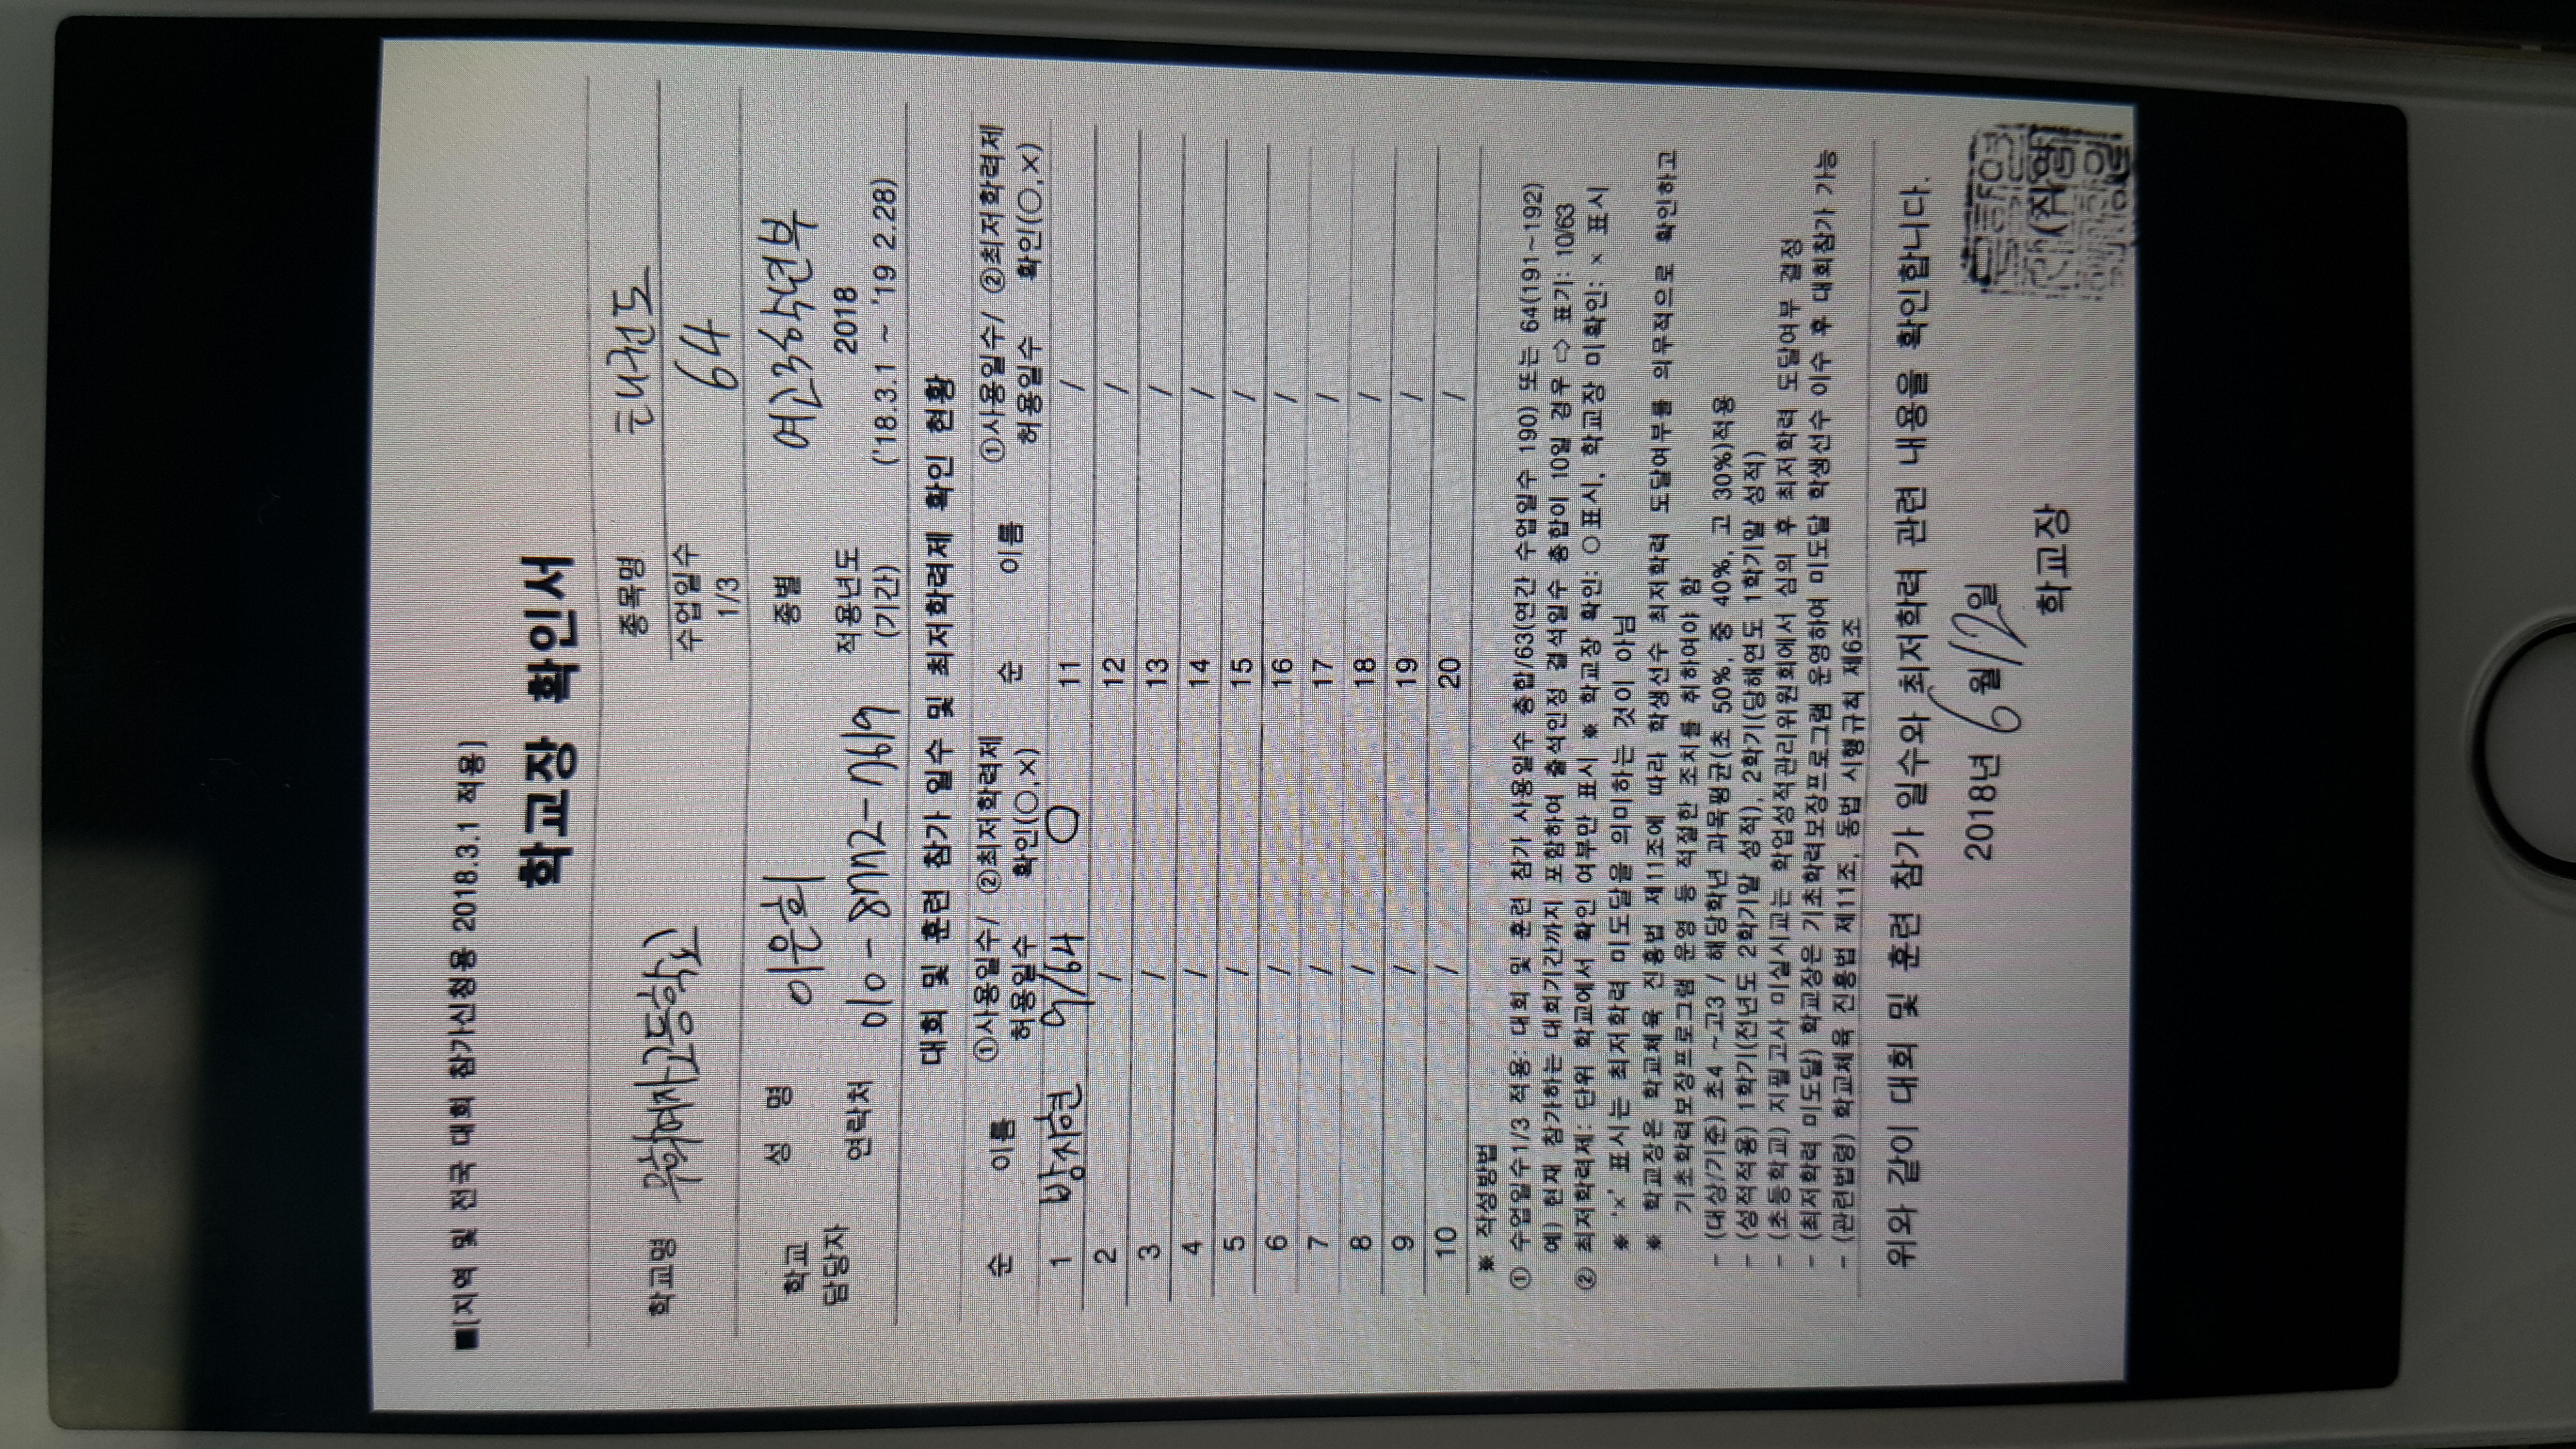 ■[지역 및 전국 대회 참가신청용 2018.3.1 적용]
학교장 확인서
학교명 여자고등학교 종목명 태권도
수업일수 1/3 64
학교 담당자 성 명 이은희 종별 여고3학년부
연락처 010-8772-7619 적용년도 (기간) 2018 ('18.3.1 ~ '19 2.28)
대회 및 훈련 참가 일수 및 최저학력제 확인 현황
순 이름 ①사용일수/ 허용일수 ②최저학력제 확인(○,×) 순 이름 ①사용일수/ 허용일수 ②최저학력제 확인(○,×)
1 방시현 9/64 ○ 11 /
2 / 12 /
3 / 13 /
4 / 14 /
5 / 15 /
6 / 16 /
7 / 17 /
8 / 18 /
9 / 19 /
10 / 20 /
※ 작성방법
① 수업일수1/3 적용: 대회 및 훈련 참가 사용일수 총합/63(연간 수업일수 190) 또는 64(191~192)
예) 현재 참가하는 대회기간까지 포함하여 출석인정 결석일수 총합이 10일 경우 ⇨ 표기: 10/63
② 최저학력제: 단위 학교에서 확인 여부만 표시 ※ 학교장 확인: ○표시, 학교장 미확인: × 표시
※ '×' 표시는 최저학력 미도달을 의미하는 것이 아님
※ 학교장은 학교체육 진흥법 제11조에 따라 학생선수 최저학력 도달여부를 의무적으로 확인하고
기초학력보장프로그램 운영 등 적절한 조치를 취하여야 함
- (대상/기준) 초4 ~고3 / 해당학년 과목평균(초 50%, 중 40%, 고 30%)적용
- (성적적용) 1학기(전년도 2학기말 성적), 2학기(당해연도 1학기말 성적)
- (초등학교) 지필고사 미실시교는 학업성적관리위원회에서 심의 후 최저학력 도달여부 결정
- (최저학력 미도달) 학교장은 기초학력보장프로그램 운영하여 미도달 학생선수 이수 후 대회참가 가능
- (관련법령) 학교체육 진흥법 제11조, 동법 시행규칙 제6조
위와 같이 대회 및 훈련 참가 일수와 최저학력 관련 내용을 확인합니다.
2018년 6월 12일
학교장 (직인)